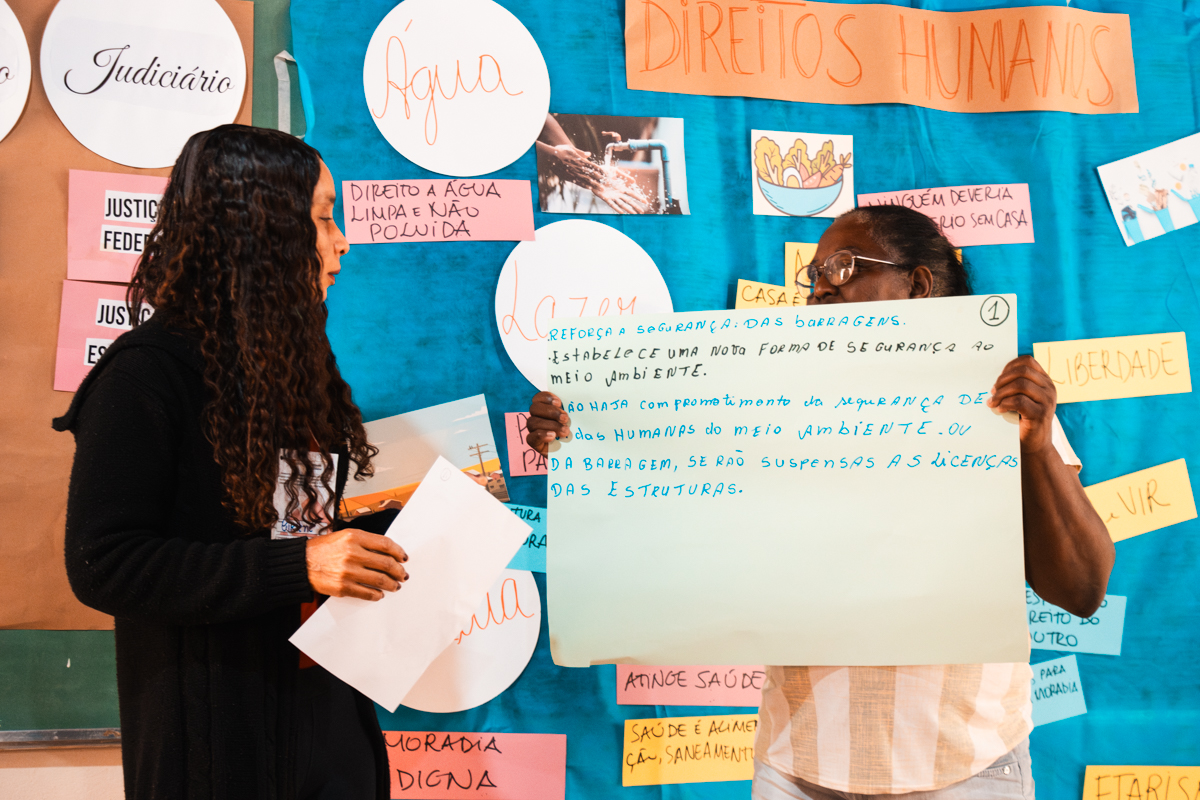 Judiciário
Água
DIREITOS HUMANOS
JUSTIÇ
FEDER
DIREITO A ÁGUA
LIMPA E NÃO
POLUIDA
NINGUÉM DEVERIA
SEM CASA
JUSTIÇ
ES
Lazer
CASA É
1
REFORÇA A SEGURANÇA: DAS BARRAGENS.
.ESTABELECE UMA NOVA FORMA DE SEGURANÇA AO
MEIO AMBIENTE.
NÃO HAJA comprometimento da segurança DE
das HUMANAS do MEIO AMBIENTE. OU
DA BARRAGEM, SERÃO SUSPENSAS AS LICENÇAS
DAS ESTRUTURAS.
LIBERDADE
VIR
TURA
REITO DO
OUTRO
PARA
MORADIA
ATINGE SAÚDE
SAÚDE É ALIMEN
ÇÃO, SANEAMENTO
MORADIA
DIGNA
ETARISM